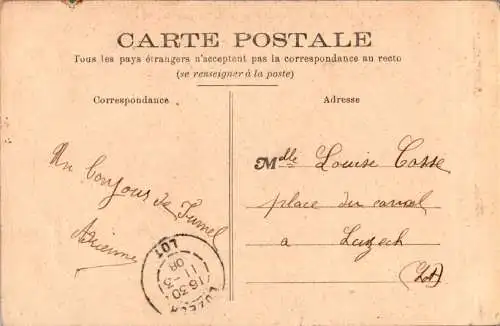 CARTE POSTALE
Tous les pays étrangers n'acceptent pas la correspondance au recto
(se renseigner à la poste)
Correspondance
Un bonjour de Fumel
Adresse
Mdlle Louise Cosse
place du canal
a Luzech
(Lot)
LUZECH
16 30
11 - 3
08
LOT